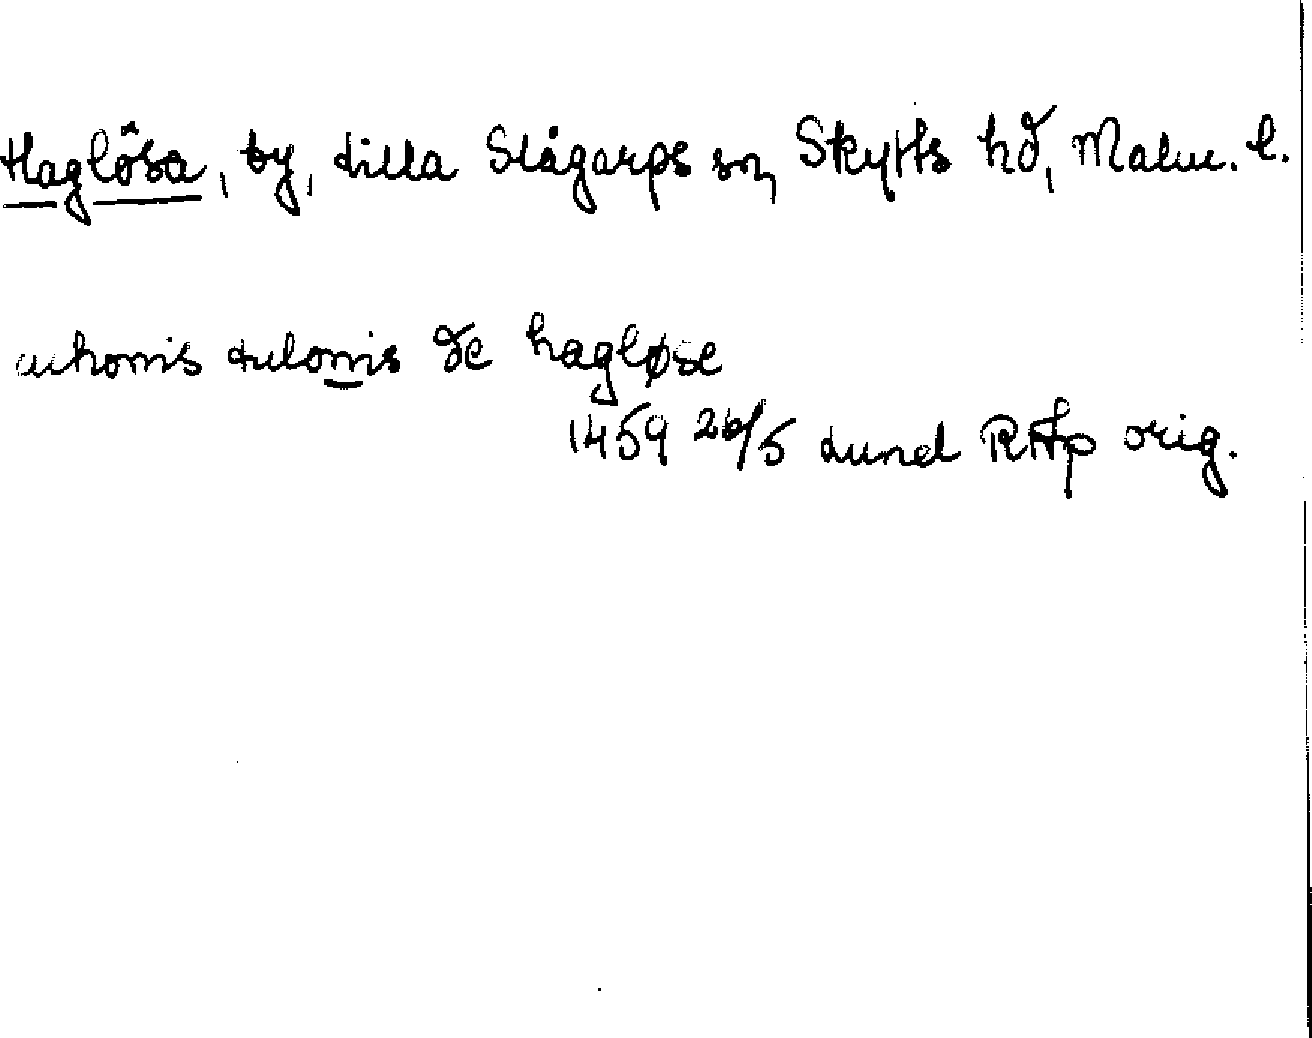 Haglösa, by, Lilla Slågarps sn, Skytts hd, Malm. l.
de hagløse
1459 26/5 Lund RHp orig.